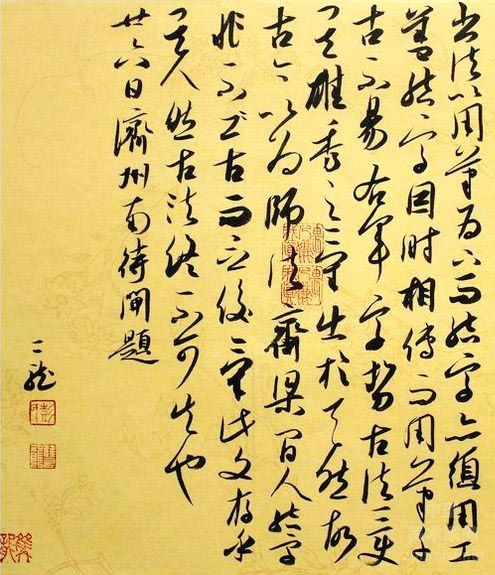 书法以用筆为上而结字亦須用工
蓋结字因时相傳而用筆千
古不易右军字勢古法一变
其雄秀之氣出於天然故
古今以為師法齊梁间人结字
非不古而乏俊氣此又存乎
其人然古法终不可失也
廿六日濟州南待闸題